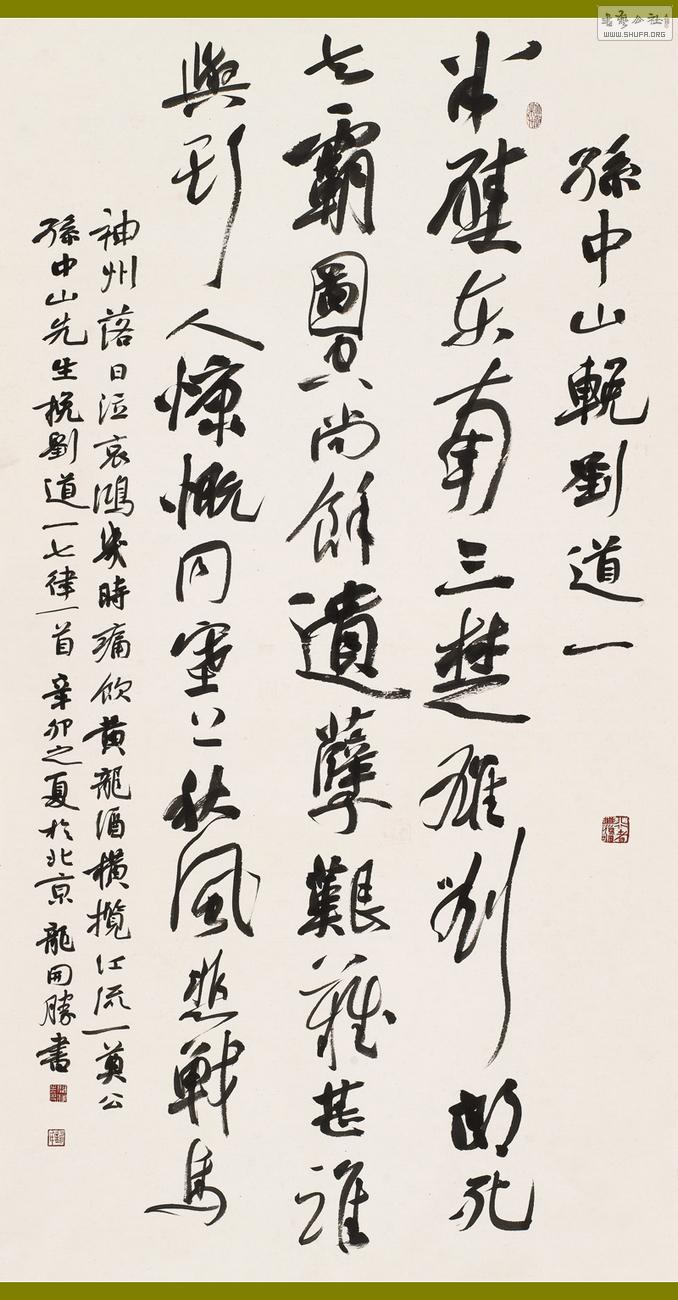 書藝公社
WWW.SHUFA.ORG
孫中山輓劉道一
半壁东南三楚雄劉郎死
去霸圖空尚餘遺孽艱難甚誰
與斯人慷慨同塞上秋風悲戰馬
神州落日泣哀鴻幾時痛飲黃龍酒橫攬江流一奠公
孫中山先生挽劉道一七律一首 辛卯之夏於北京 龍開勝書